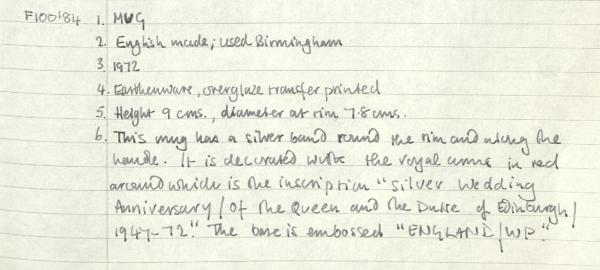 F100'84 1. MUG
2. English made; used Birmingham
3. 1972
4. Earthenware, overglaze transfer printed
5. Height 9 cms., diameter at rim 7.8 cms.
6. This mug has a silver band round the rim and along the
handle. It is decorated with the royal arms in red
around which is the inscription "Silver Wedding
Anniversary / Of the Queen and the Duke of Edinburgh /
1947-72." The base is embossed "ENGLAND/WP."